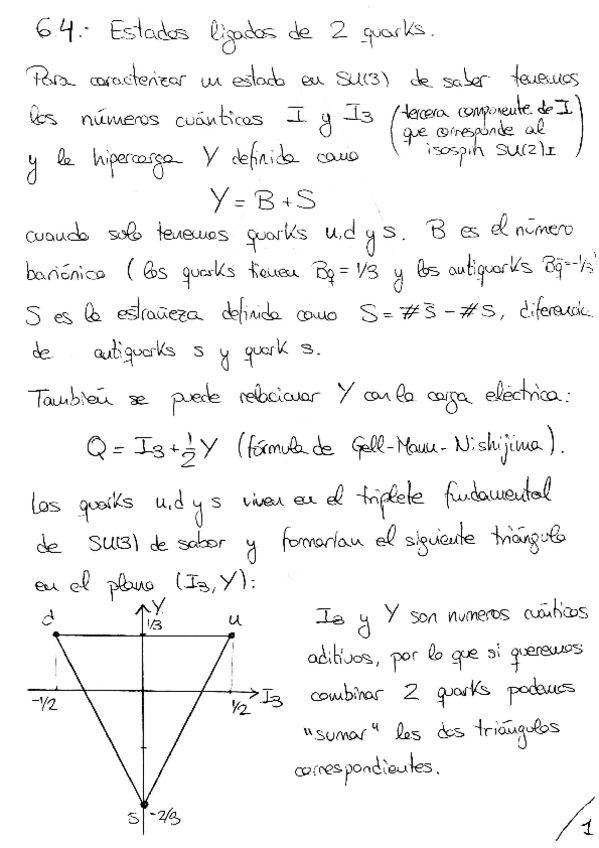 6.4.- Estados ligados de 2 quarks.
Para caracterizar un estado en SU(3) de sabor tenemos
los números cuánticos I y I3 (tercera componente de I
que corresponde al
isospin SU(2)I)
y la hipercarga Y definida como
Y = B + S
cuando solo tenemos quarks u,d y s. B es el número
bariónico (los quarks tienen Bq = 1/3 y los antiquarks Bq̄ = -1/3)
S es la estrañeza definida como S = # s̄ - # s, diferencia
de antiquarks s y quark s.
También se puede relacionar Y con la carga eléctrica:
Q = I3 + 1/2 Y (fórmula de Gell-Mann-Nishijima).
Los quarks u,d y s viven en el triplete fundamental
de SU(3) de sabor y formarían el siguiente triángulo
en el plano (I3, Y):
d Y u
1/3
-1/2 1/2 I3
s -2/3
I3 y Y son numeros cuánticos
aditivos, por lo que si queremos
combinar 2 quarks podemos
"sumar" los dos triángulos
correspondientes.
1